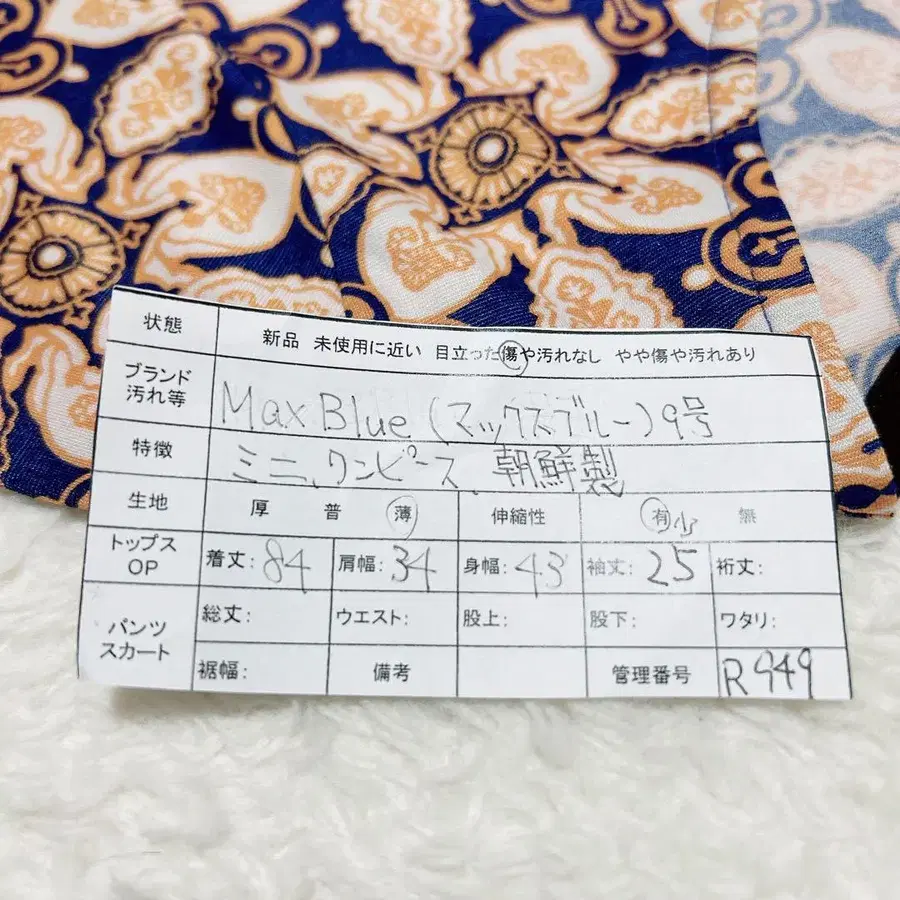 状態 新品 未使用に近い 目立った傷や汚れなし やや傷や汚れあり
ブランド
汚れ等
Max Blue (マックスブルー) 9号
特徴 ミニ、ワンピース、朝鮮製
生地 厚 普 薄 伸縮性 有 少 無
トップス
OP
着丈: 84 肩幅: 34 身幅: 43 袖丈: 25 裄丈:
パンツ
スカート
総丈: ウエスト: 股上: 股下: ワタリ:
裾幅: 備考 管理番号 R949